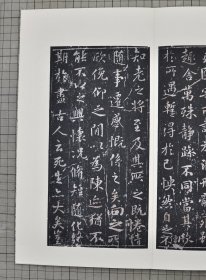 趣舍萬殊靜躁不同當其欣
於所遇蹔得於己怏然自足不
知老之將至及其所之既惓情
隨事遷感慨係之矣向之所
欣俛仰之間以為陳迹猶不
能不以之興懷況脩短隨化終
期於盡古人云死生亦大矣豈